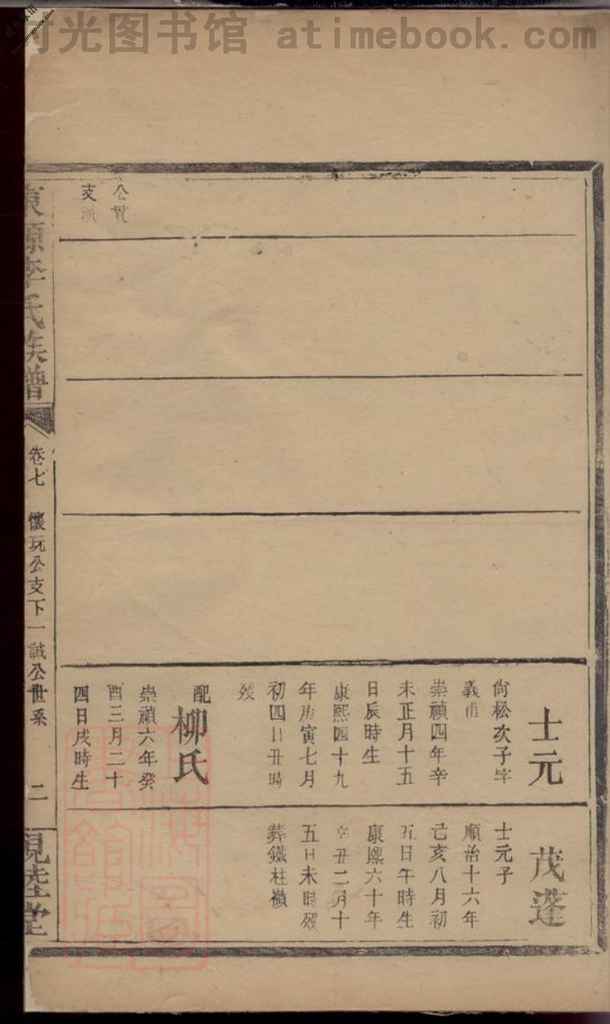 时光图书馆 atimebook.com
士元
尙松次子字
義甫
崇禎四年辛
未正月十五
日辰時生
康熙四十九
年庚寅七月
初四日丑時
歿
配
柳氏
崇禎六年癸
酉三月二十
四日戌時生
茂蓬
士元子
順治十六年
己亥八月初
五日午時生
康熙六十年
辛丑二月十
五日未時歿
葬鐵柱嶺
源李氏族譜
卷七
懷玩公支下一誠公世系
二
堂